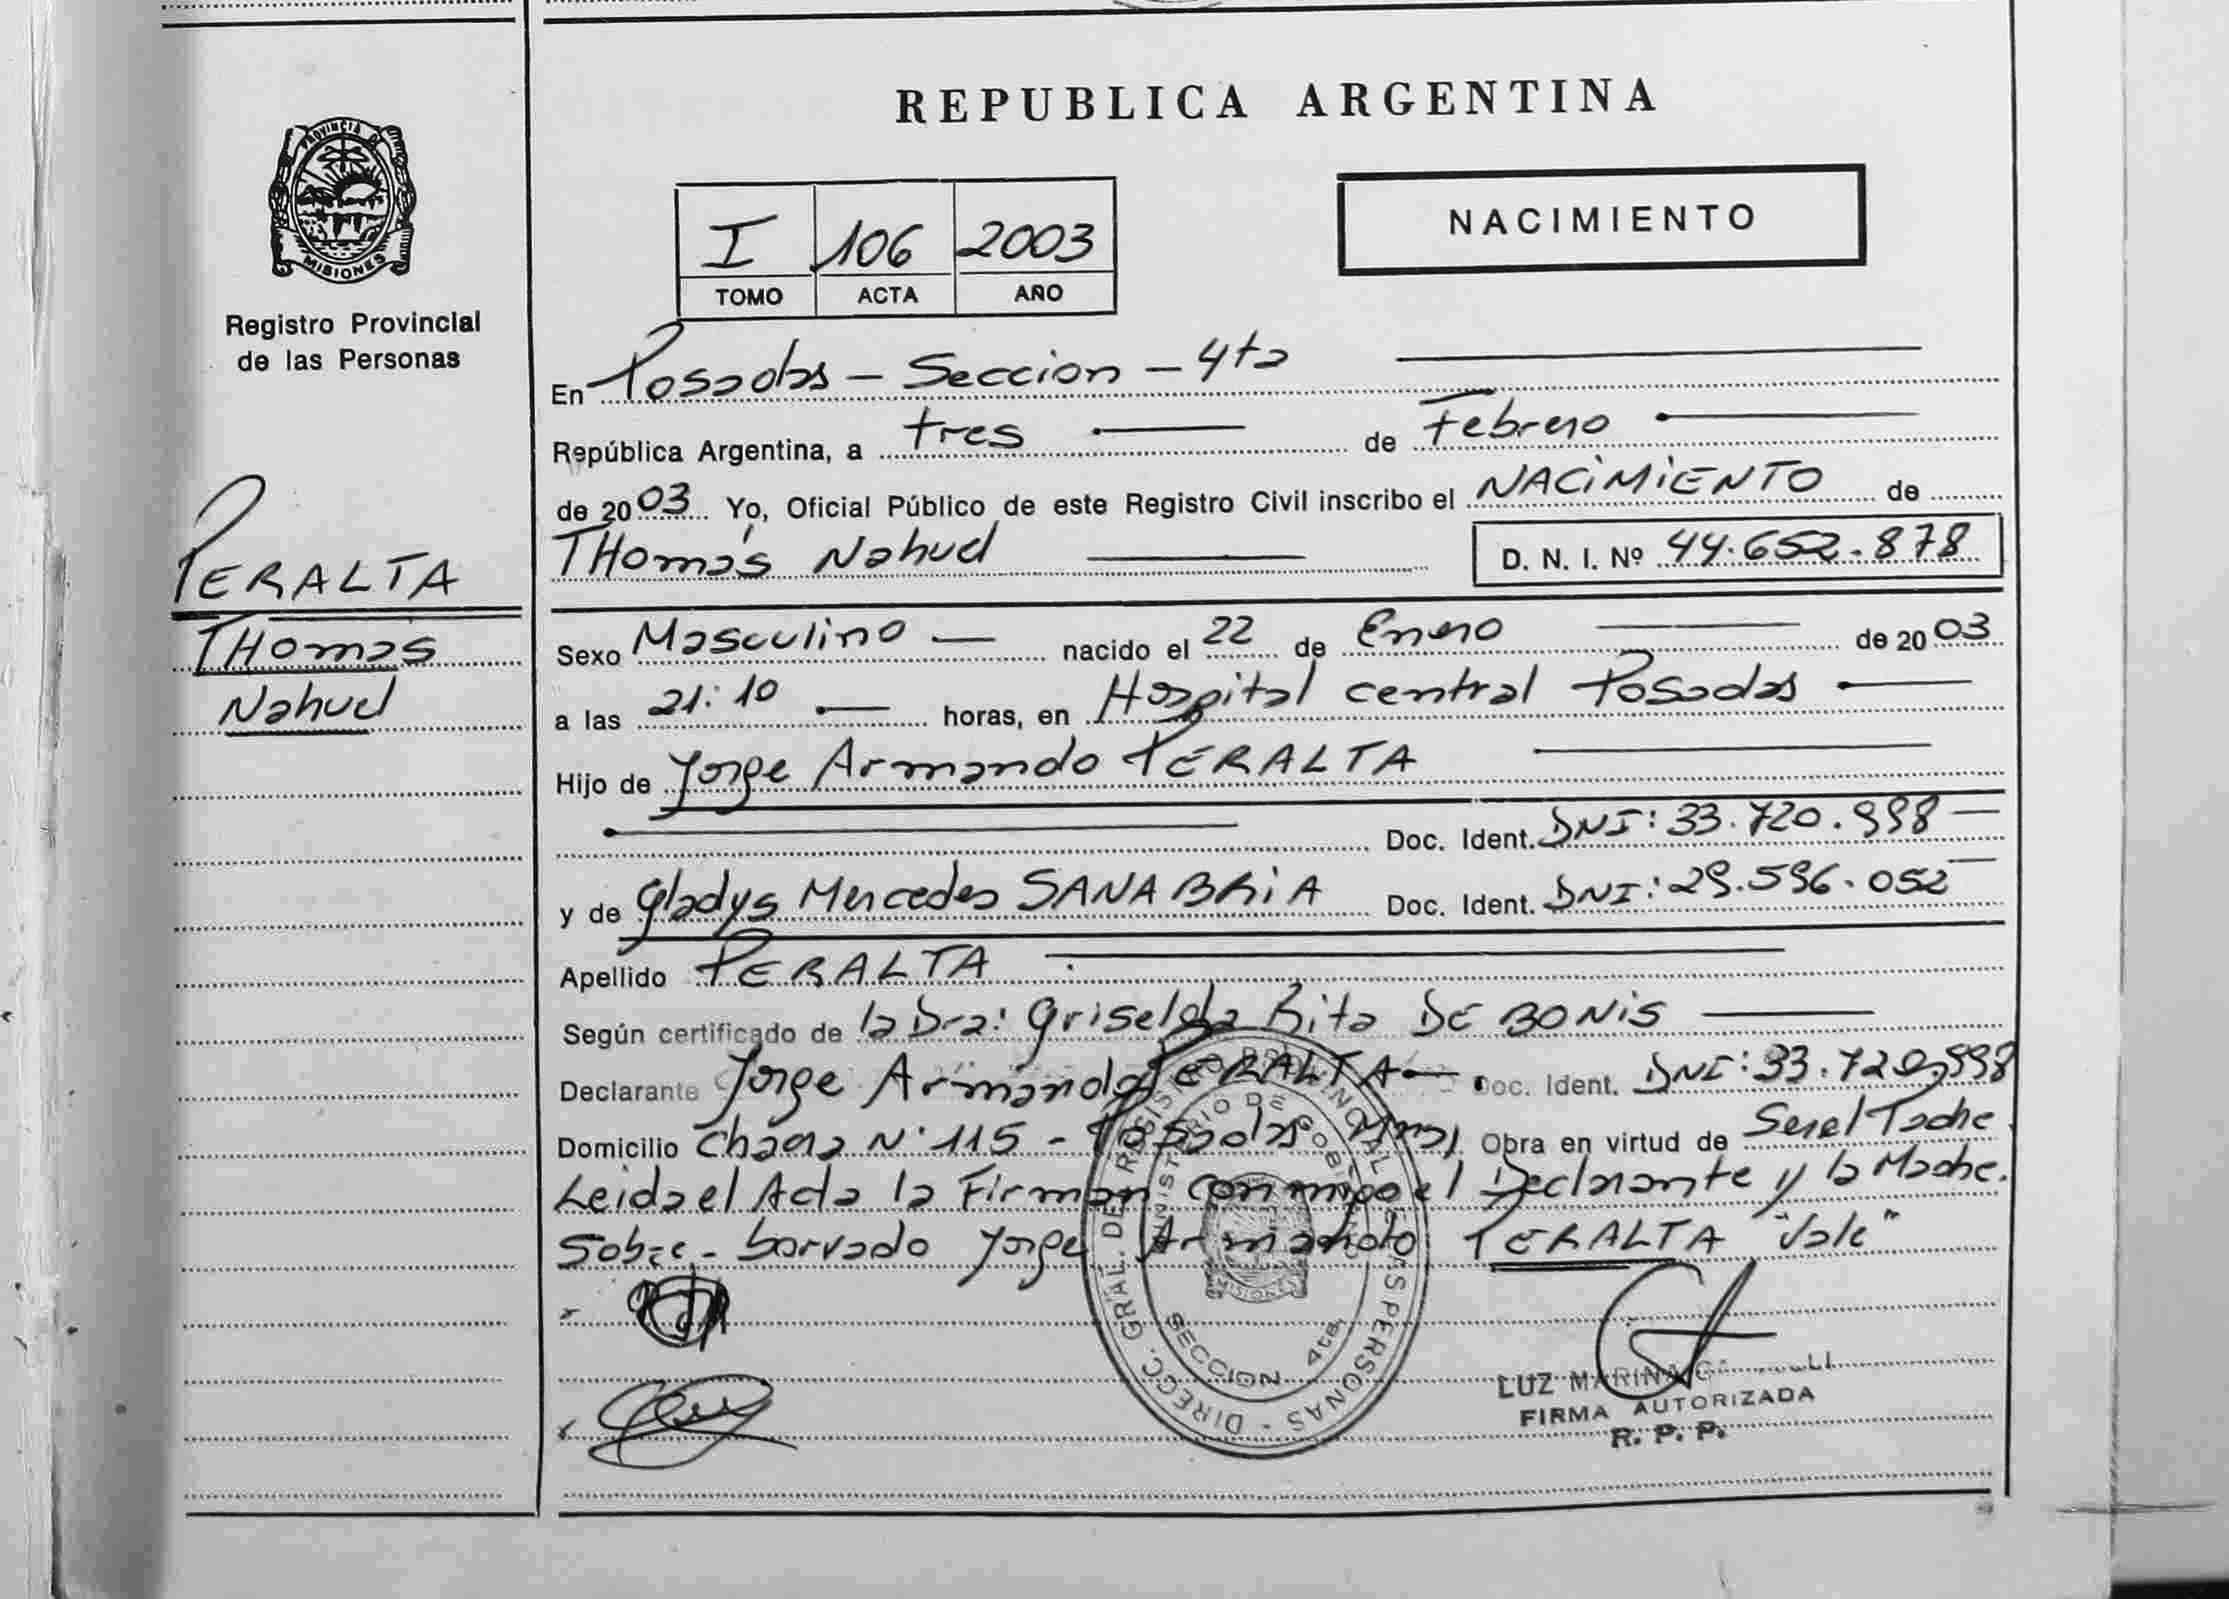 REPUBLICA ARGENTINA
PROVINCIA DE
MISIONES
Registro Provincial
de las Personas
NACIMIENTO
I 106 2003
TOMO ACTA AÑO
En Posadas - Seccion - 4ta
República Argentina, a tres de Febrero
de 2003 Yo, Oficial Público de este Registro Civil inscribo el NACIMIENTO de
THomás Nahuel D. N. I. Nº 44.652.878
PERALTA
THomas
Nahuel
Sexo Masculino nacido el 22 de Enero de 2003
a las 21:10 horas, en Hospital central Posadas
Hijo de Jorge Armando PERALTA
Doc. Ident. DNI: 33.720.998
y de Gladys Mercedes SANABRIA Doc. Ident. DNI: 29.596.052
Apellido PERALTA
Según certificado de la Dra: Griselda Rita DE BONIS
Declarante Jorge Armando PERALTA Doc. Ident. DNI: 33.720.998
Domicilio Chacra N° 115 - Posadas Mnes Obra en virtud de Ser el Padre.
Leida el Acta la Firman conmigo el Declarante y la Madre.
Sobre-borrado Jorge Armando PERALTA "Vale"
DIRECC. GRAL. DE REGISTRO PROVINCIAL DE LAS PERSONAS
MINISTERIO DE GOBIERNO
MISIONES
SECCION 4ta.
LUZ MARINA
FIRMA AUTORIZADA
R. P. P.